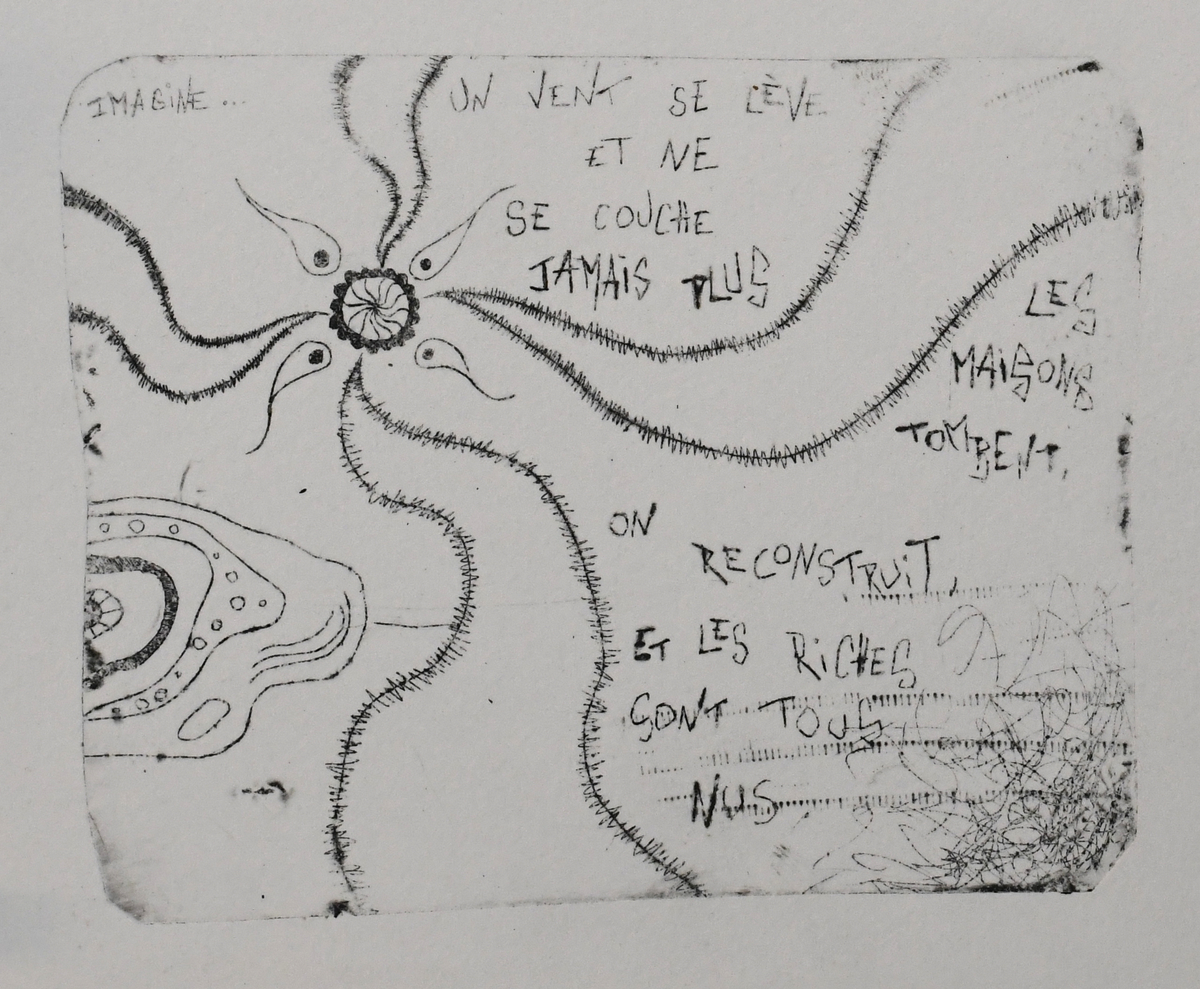 IMAGINE...
UN VENT SE LÈVE
ET NE
SE COUCHE
JAMAIS PLUS
LES
MAISONS
TOMBENT,
ON
RECONSTRUIT,
ET LES RICHES
SONT TOUS
NUS